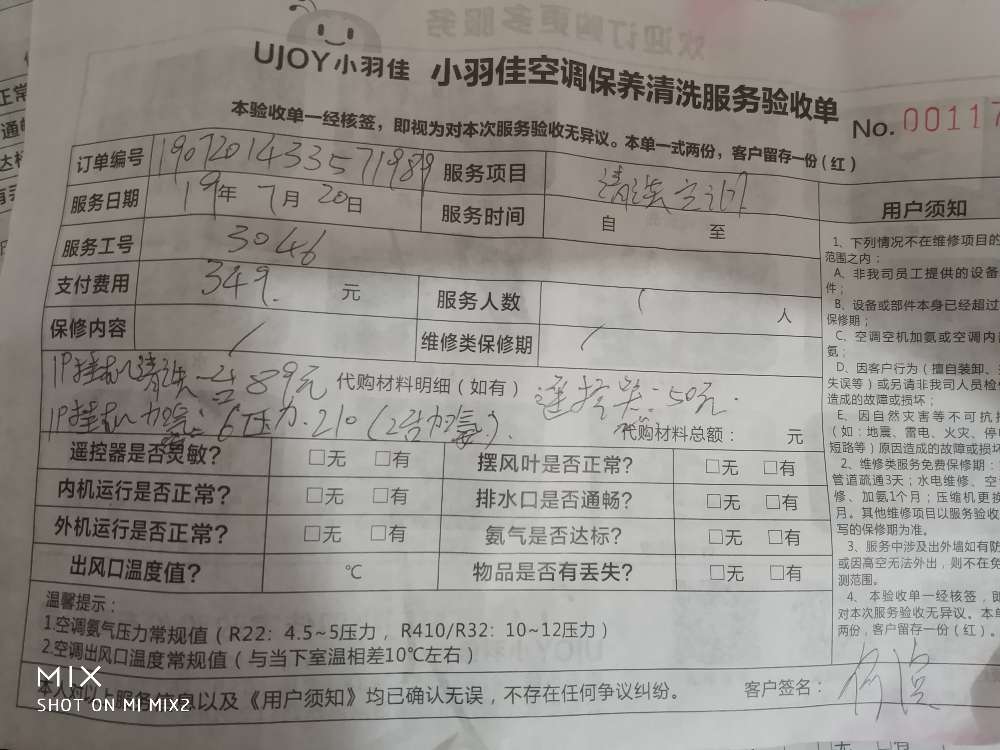 欢迎订购更多服务
UJOY小羽佳 小羽佳空调保养清洗服务验收单
No. 00117
本验收单一经核签，即视为对本次服务验收无异议。本单一式两份，客户留存一份(红)
订单编号 1907201433571989 服务项目 清洗空调
服务日期 19年 7月 20日 服务时间 自 至
服务工号 3046
支付费用 349. 元 服务人数 1 人
保修内容 / 维修类保修期 /
1P挂机清洗一台89元 代购材料明细(如有) 遥控器:50元.
1P挂机加氨:6压力.210(2台加氨). 代购材料总额: 元
遥控器是否灵敏? □无 □有 摆风叶是否正常? □无 □有
内机运行是否正常? □无 □有 排水口是否通畅? □无 □有
外机运行是否正常? □无 □有 氨气是否达标? □无 □有
出风口温度值? ℃ 物品是否有丢失? □无 □有
温馨提示:
1.空调氨气压力常规值(R22: 4.5~5压力, R410/R32: 10~12压力)
2.空调出风口温度常规值(与当下室温相差10℃左右)
本人对以上服务信息以及《用户须知》均已确认无误，不存在任何争议纠纷。 客户签名:
用户须知
1、下列情况不在维修项目的
范围之内:
A、非我司员工提供的设备
件;
B、设备或部件本身已经超过
保修期;
C、空调空机加氨或空调内
氨;
D、因客户行为(擅自装卸、
失误等)或另请非我司人员检
造成的故障或损坏;
E、因自然灾害等不可抗
(如:地震、雷电、火灾、停电
短路等)原因造成的故障或损坏
2、维修类服务免费保修期:
管道疏通3天;水电维修、空
修、加氨1个月;压缩机更换
月。其他维修项目以服务验收
写的保修期为准。
3、服务中涉及出外墙如有防
或因高空无法外出，则不在免
测范围。
4、本验收单一经核签，即
对本次服务验收无异议。本单
两份，客户留存一份(红)。
MIX
SHOT ON MI MIX2